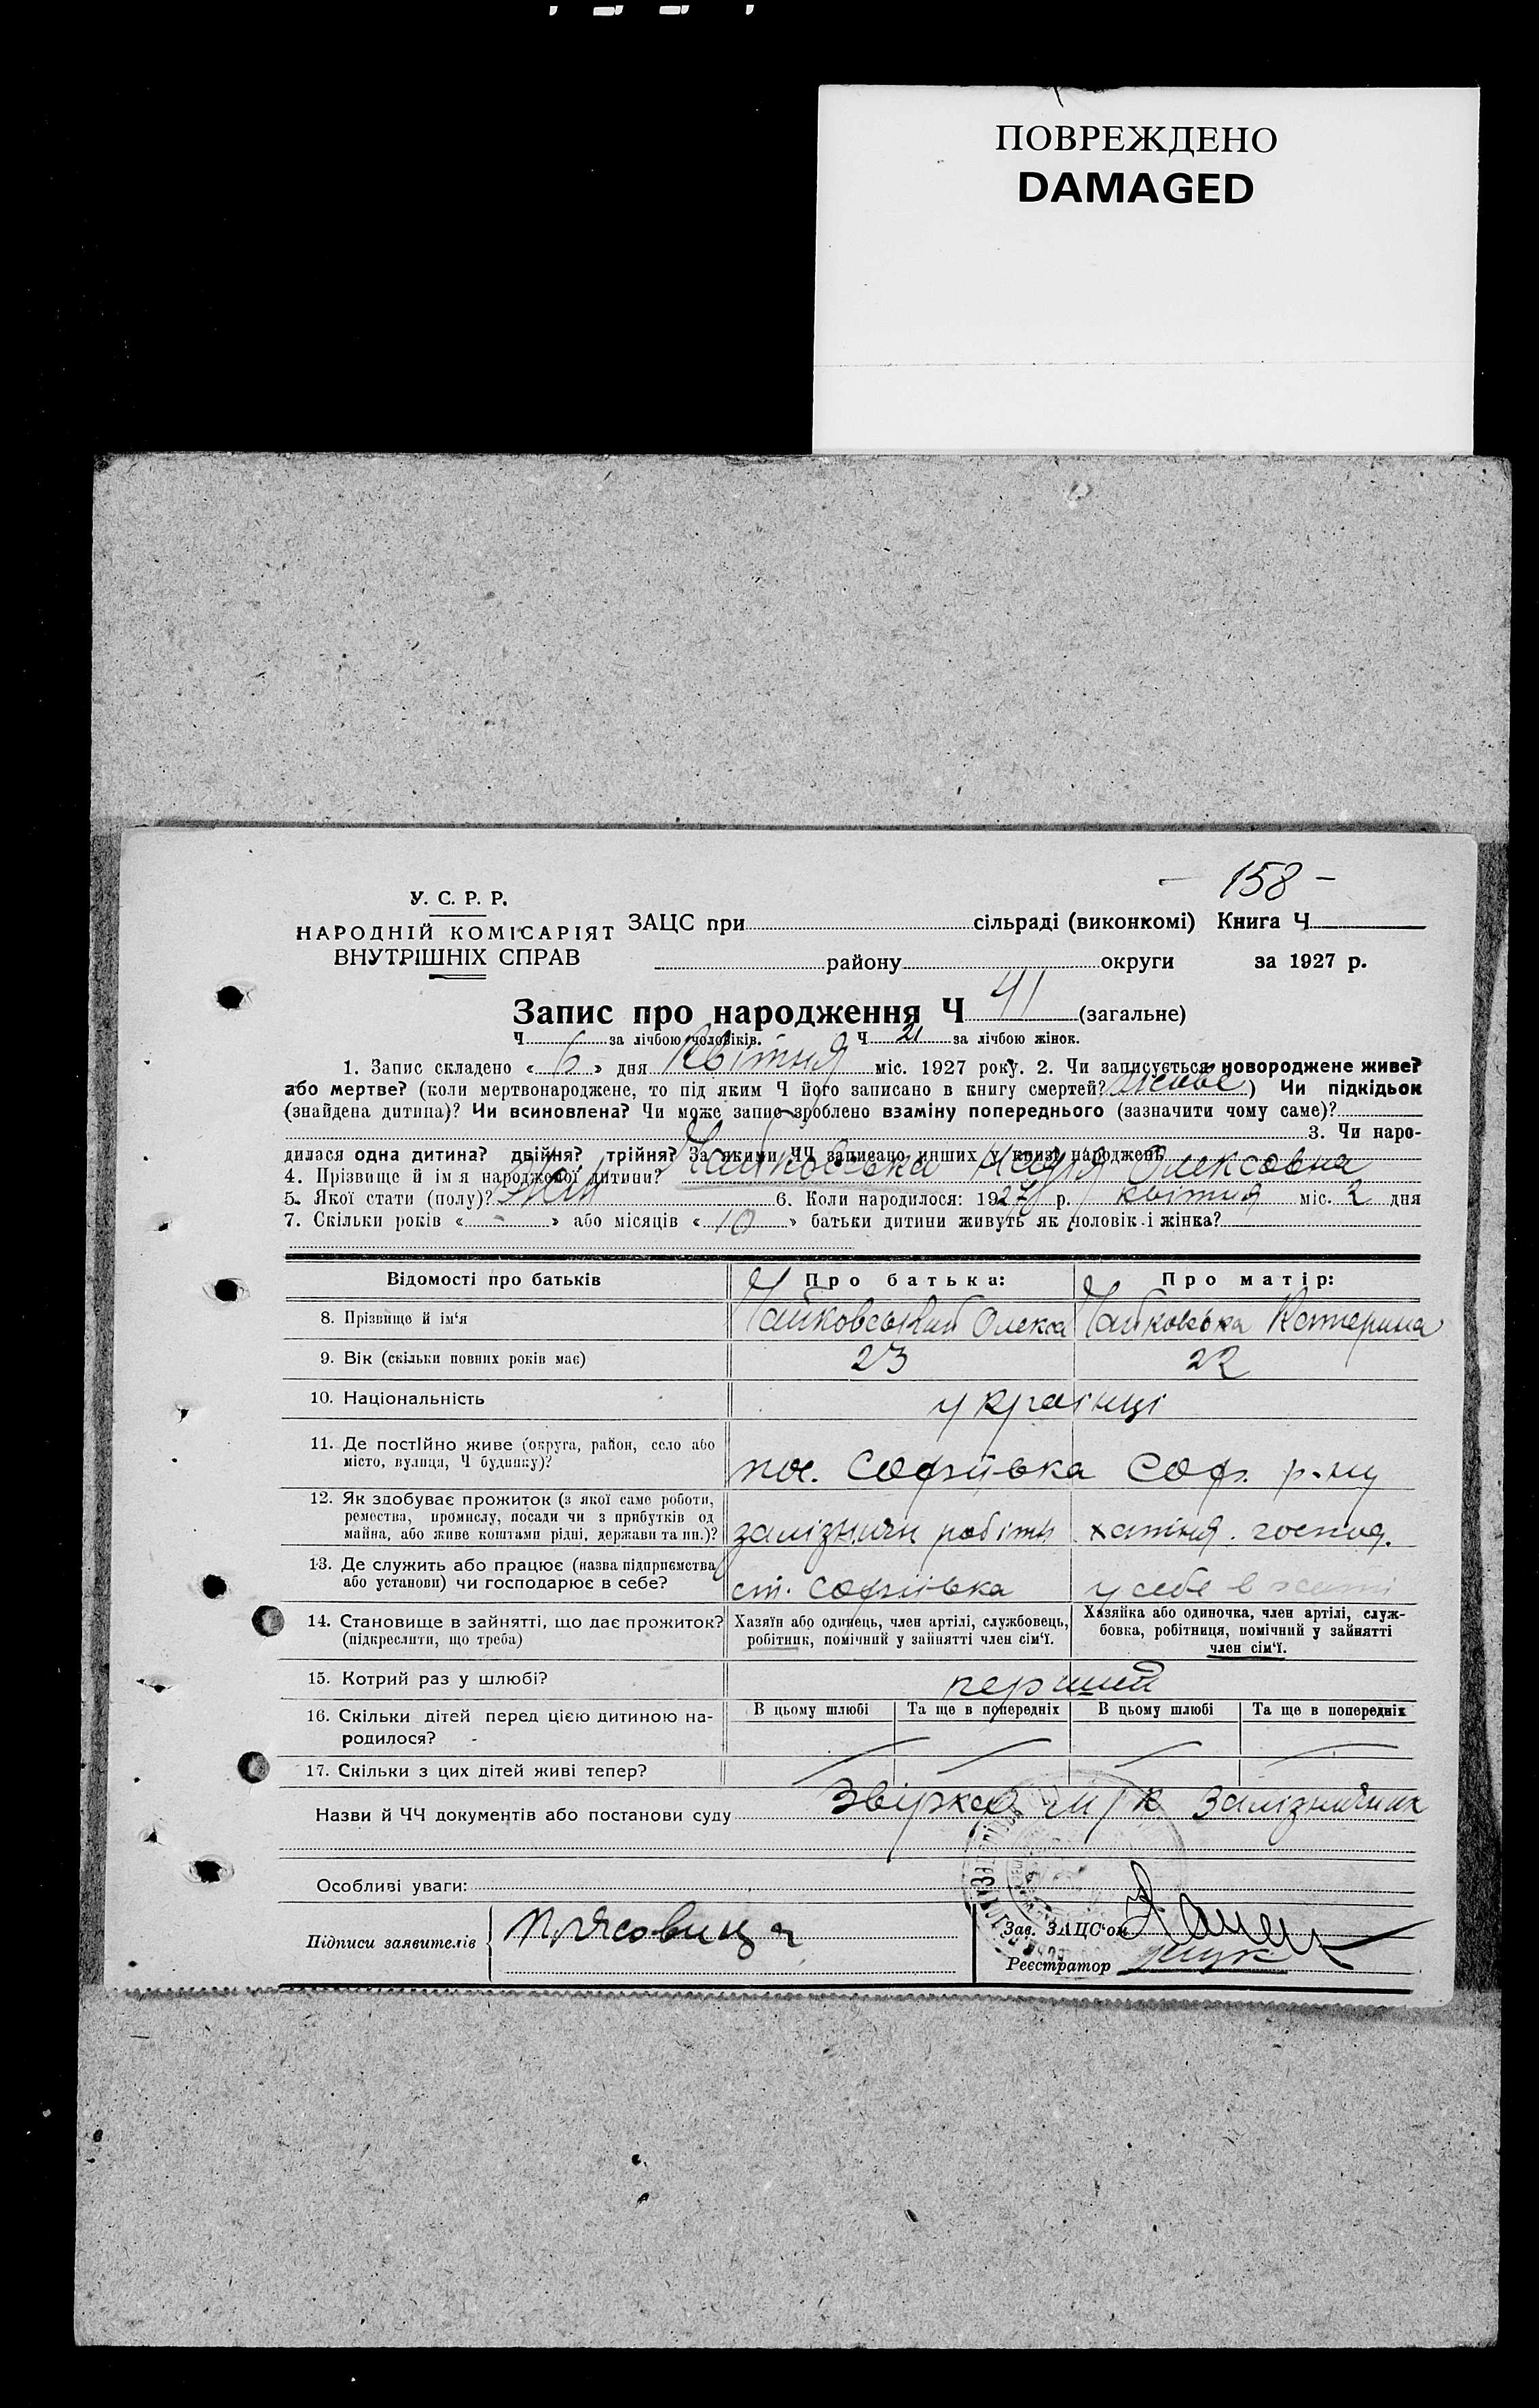 ПОВРЕЖДЕНО
DAMAGED
- 158 -
У. С. Р. Р.
НАРОДНІЙ КОМІСАРІЯТ
ВНУТРІШНІХ СПРАВ
ЗАЦС при сільраді (виконкомі) Книга Ч
району округи за 1927 р.
Запис про народження Ч 41 (загальне)
Ч за лічбою чоловіків. Ч 21 за лічбою жінок.
1. Запис складено « 6 » дня Квітня міс. 1927 року. 2. Чи записується новороджене живе?
або мертве? (коли мертвонароджене, то під яким Ч його записано в книгу смертей? живе ) Чи підкідьок
(знайдена дитина)? Чи всиновлена? Чи може запис зроблено взаміну попереднього (зазначити чому саме)?
3. Чи наро-
дилася одна дитина? двійня? трійня? За якими ЧЧ записано инших у книзі народжень
4. Прізвище й ім'я народженої дитини? Чайковська Надія Олексовна
5. Якої стати (полу)? Жін 6. Коли народилося: 1927 р. квітня міс. 2 дня
7. Скільки років « - » або місяців « 10 » батьки дитини живуть як чоловік і жінка?
Відомості про батьків Про батька: Про матір:
8. Прізвище й ім'я Чайковський Олекса Чайковська Катерина
9. Вік (скільки повних років має) 23 22
10. Національність українці
11. Де постійно живе (округа, район, село або
місто, вулиця, Ч будинку)? пос. Софіївка Соф. р-ну
12. Як здобуває прожиток (з якої саме роботи,
ремества, промислу, посади чи з прибутків од
майна, або живе коштами рідні, держави та ин.)? залізничн робітн хатня. господ.
13. Де служить або працює (назва підприємства
або установи) чи господарює в себе? ст. Софіївка у себе в хаті
14. Становище в зайнятті, що дає прожиток?
(підкреслити, що треба)
Хазяїн або одинець, член артілі, службовець,
робітник, помічний у зайнятті член сім'ї.
Хазяйка або одиночка, член артілі, служ-
бовка, робітниця, помічний у зайнятті
член сім'ї.
15. Котрий раз у шлюбі? перший
16. Скільки дітей перед цією дитиною на-
родилося? -
В цьому шлюбі Та ще в попередніх В цьому шлюбі Та ще в попередніх
17. Скільки з цих дітей живі тепер?
Назви й ЧЧ документів або постанови суду Звірка Залізничник
Особливі уваги:
Підписи заявителів
Зав. ЗАЦС'ом
Реєстратор